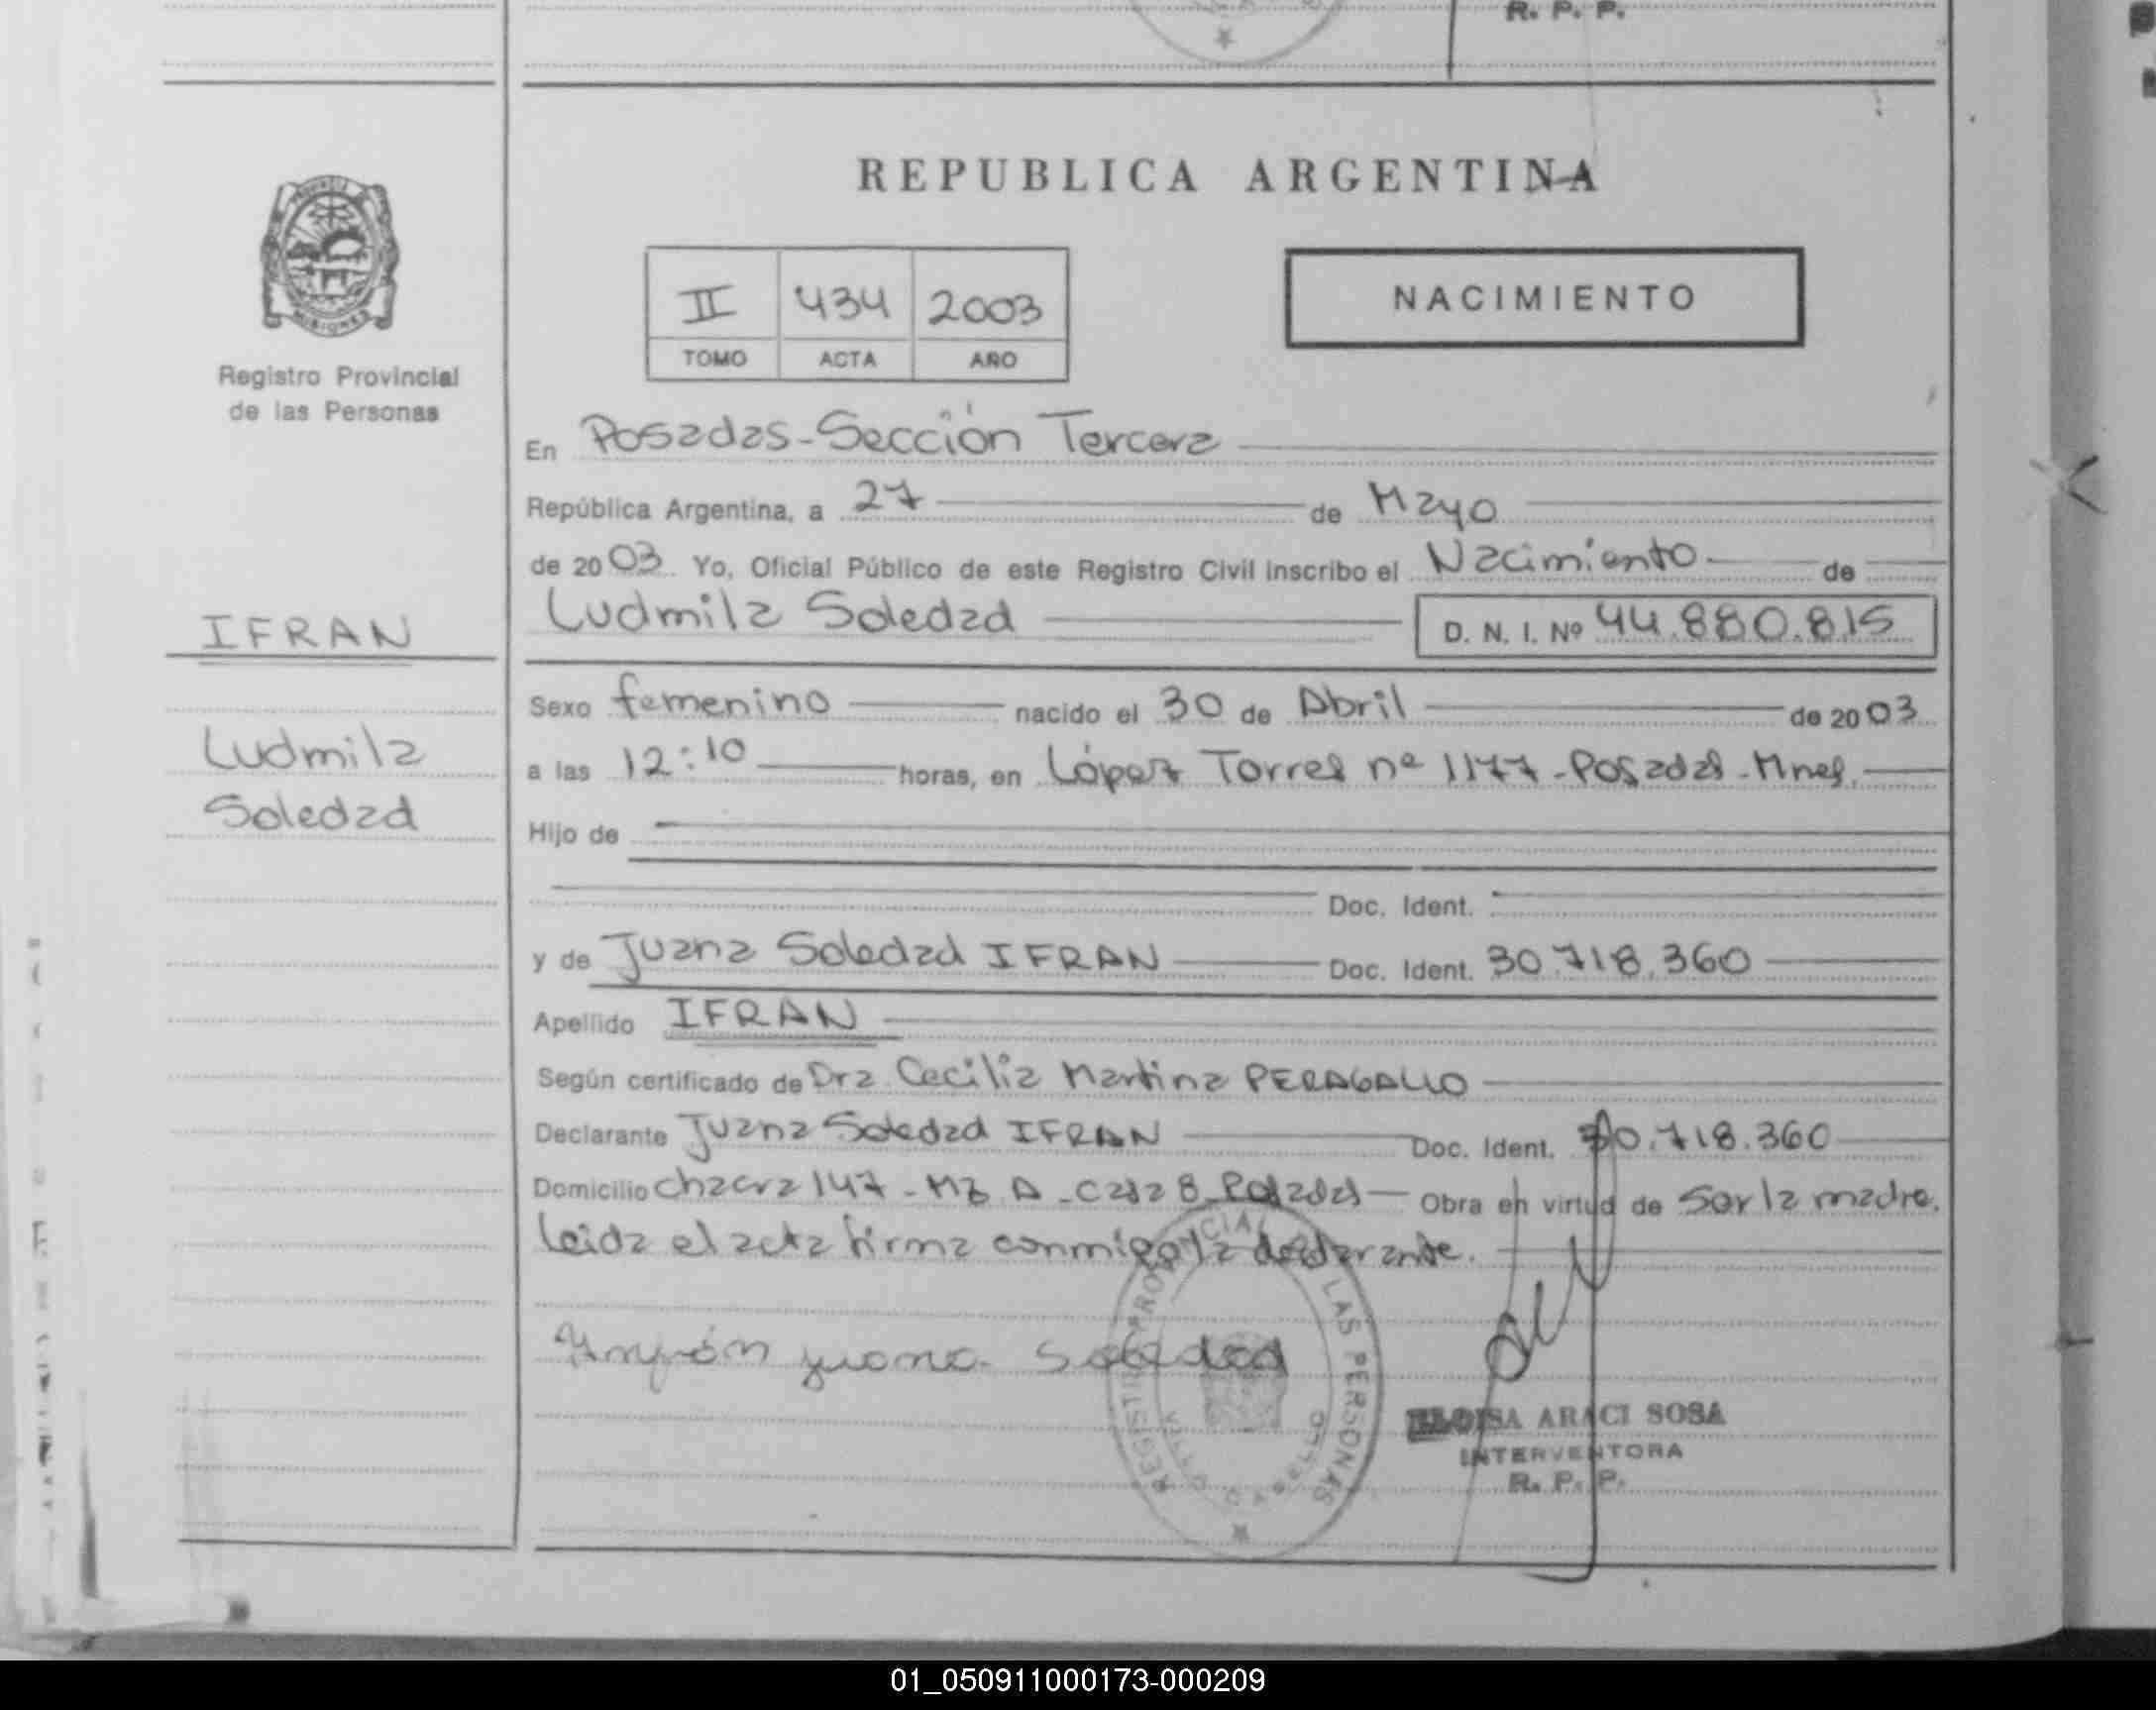 R. P. P.
REPUBLICA ARGENTINA
MISIONES
Registro Provincial
de las Personas
II 434 2003
TOMO ACTA AÑO
NACIMIENTO
En Posadas-Sección Tercera
República Argentina, a 27 de Mayo
de 2003. Yo, Oficial Público de este Registro Civil inscribo el Nacimiento de
Ludmila Soledad D. N. I. Nº 44.880.815
IFRAN
Ludmila
Soledad
Sexo femenino nacido el 30 de Abril de 2003
a las 12:10 horas, en López Torres nº 1177-Posadas-Mnes.
Hijo de
Doc. Ident.
y de Juana Soledad IFRAN Doc. Ident. 30.718.360
Apellido IFRAN
Según certificado de Dra. Cecilia Martina PERAGALLO
Declarante Juana Soledad IFRAN Doc. Ident. 30.718.360
Domicilio chacra 147-Mz A-casa 8-Posadas Obra en virtud de ser la madre.
Leida el acta firma conmigo la declarante.
juana Soledad
REGISTRO PROVINCIAL DE LAS PERSONAS
ELOISA ARACI SOSA
INTERVENTORA
R. P. P.
01_050911000173-000209